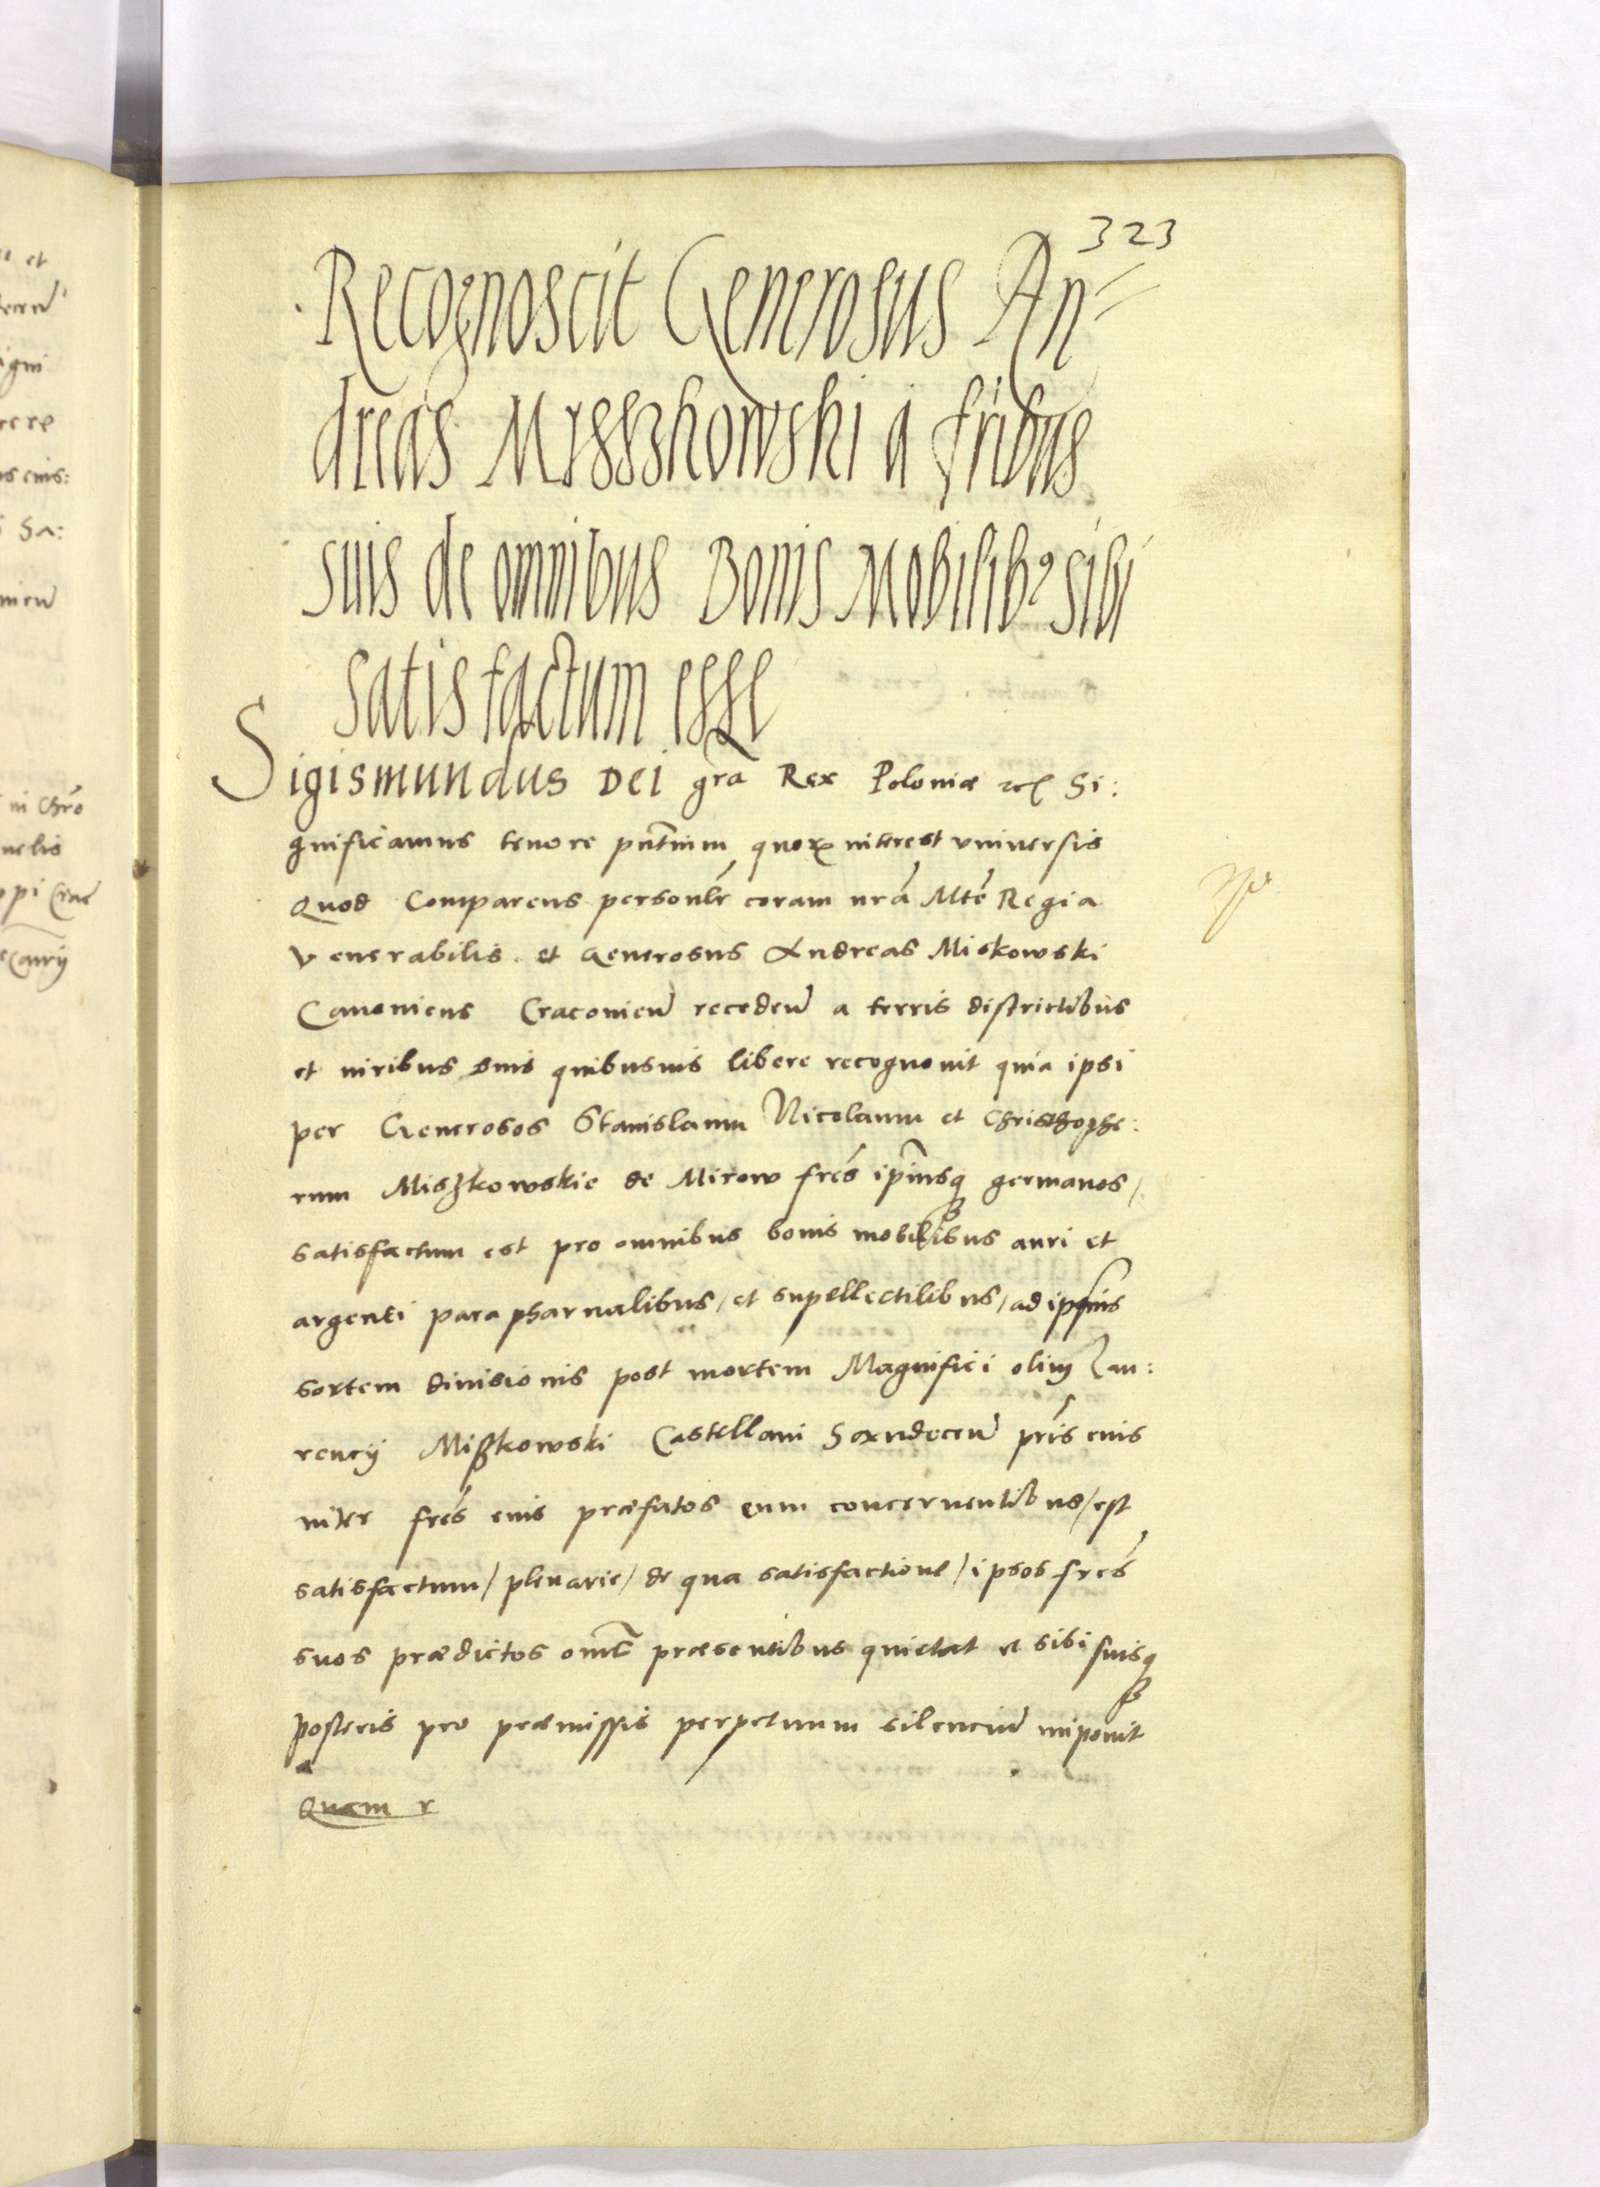 323
Recognoscit Generosus An=
dreas Misszkowski a fribus
suis de omnibus Bonis Mobilib9 sibi
satisfactum esse
Sigismundus Dei gra Rex Poloniæ etc Si:
gnificamus tenore pntium quorum interest vniuersis
Quod Comparens personlr coram nra Mte Regia
Venerabilis et Generosus Andreas Miskowski
Canonicus Cracovien receden a terris districtibus
et iuribus suis quibusuis libere recognouit quia ipsi
per Generosos Stanislaum Nicolaum et Christhophe:
rum Miszkowskie de Mirow fres ipiusq germanos /
satisfactum est pro omnibus bonis mobilibus auri et
argenti paraphernalibus / et supellectilibus / ad ipsius
sortem diuisionis post mortem Magnifici olim Lau:
rencij Miszkowski Castellani Sandecen pris eius
inter fres eius præfatos eum concernentibus / est
satisfactum / plenarie / de qua satisfactione / ipsos fres
suos prædictos omes præsentibus quietat et sibi suisq
posteris pro præmissis perpetuum silenciu imponit
Quam r
in Chro